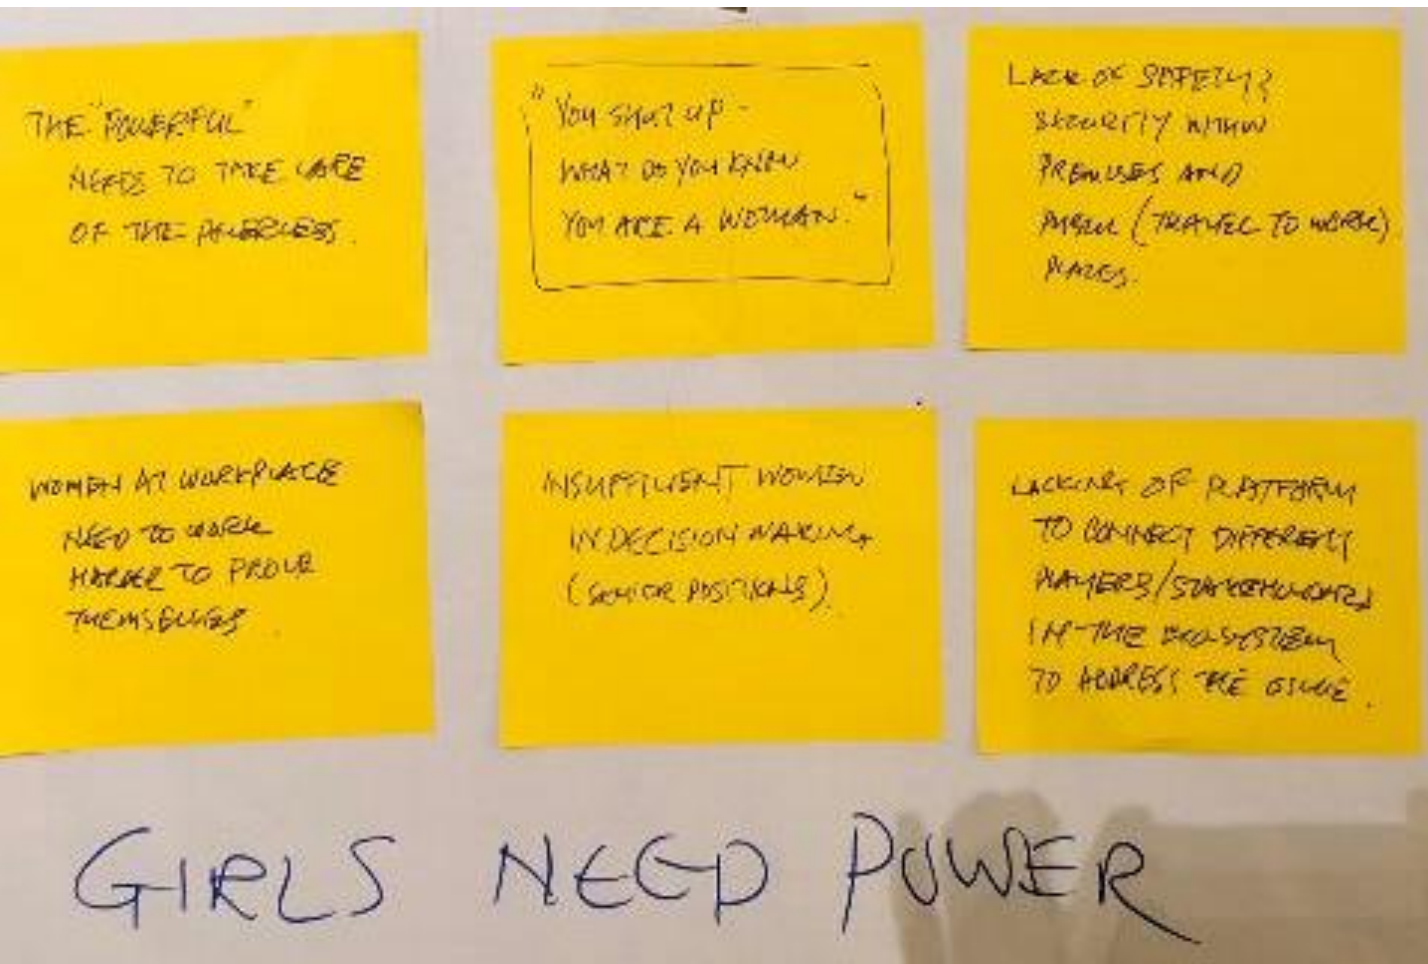 THE "POWERFUL"
NEEDS TO TAKE CARE
OF THE POWERLESS.
"YOU SHUT UP -
WHAT DO YOU KNOW
YOU ARE A WOMAN."
LACK OF SAFETY &
SECURITY WITHIN
PREMISES AND
PUBLIC (TRAVEL TO WORK)
PLACES.
WOMEN AT WORKPLACE
NEED TO WORK
HARDER TO PROVE
THEMSELVES
INSUFFICIENT WOMEN
IN DECISION MAKING
(SENIOR POSITIONS)
LACKING OF PLATFORM
TO CONNECT DIFFERENT
PLAYERS/STAKEHOLDERS
IN THE ECOSYSTEM
TO ADDRESS THE ISSUE.
GIRLS NEED POWER